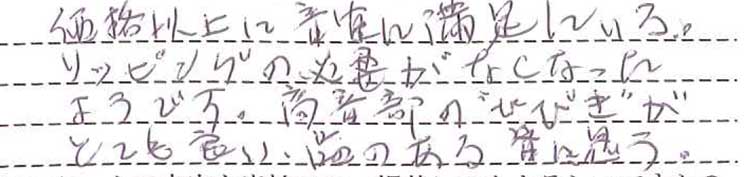 価格以上に音質に満足している。
リッピングの必要がなくなった
ようです。高音部の“ひびき”が
とても良い、深みのある音に思う。